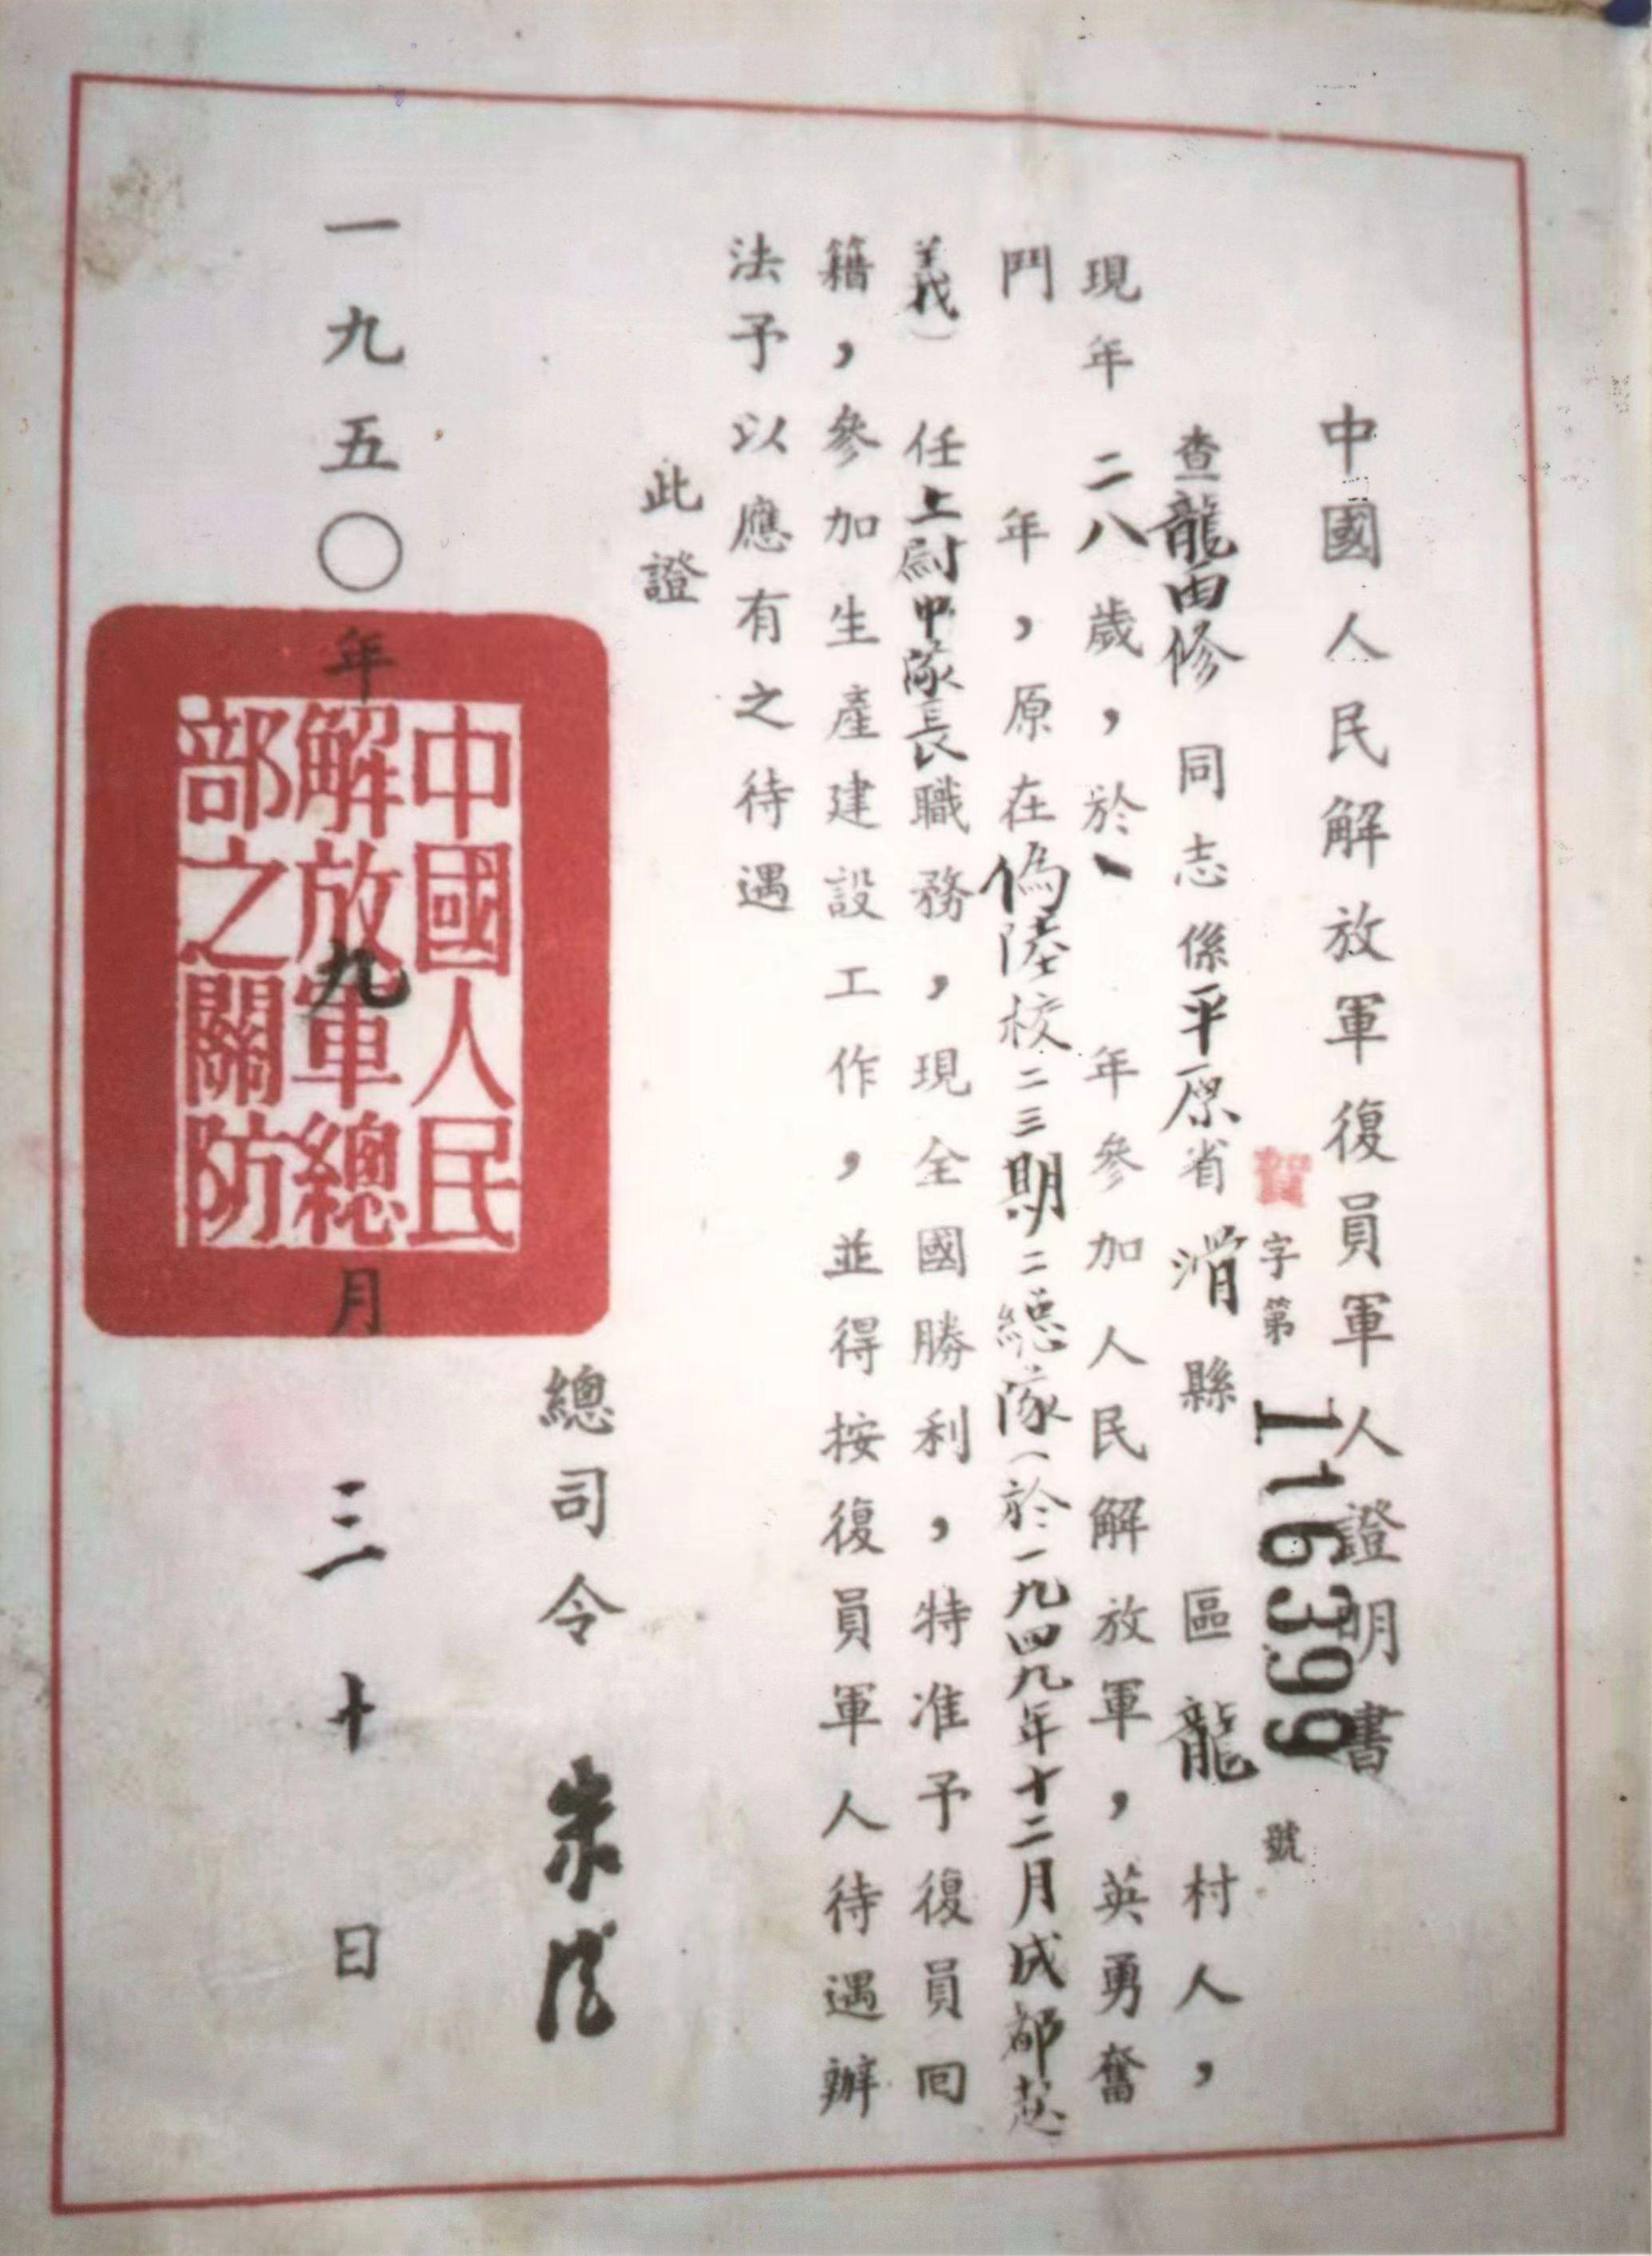 中國人民解放軍復員軍人證明書
賀字第116399號
查龍由修同志係平原省滑縣 區龍 村人，
現年二八歲，於 年參加人民解放軍，英勇奮
鬥 年，原在偽陸校二三期二總隊（於一九四九年十二月成都起
義）任上尉中隊長職務，現全國勝利，特准予復員回
籍，參加生產建設工作，並得按復員軍人待遇辦
法予以應有之待遇
此證
總司令 朱德
一九五〇年九月三十日
中國人民
解放軍總
部之關防